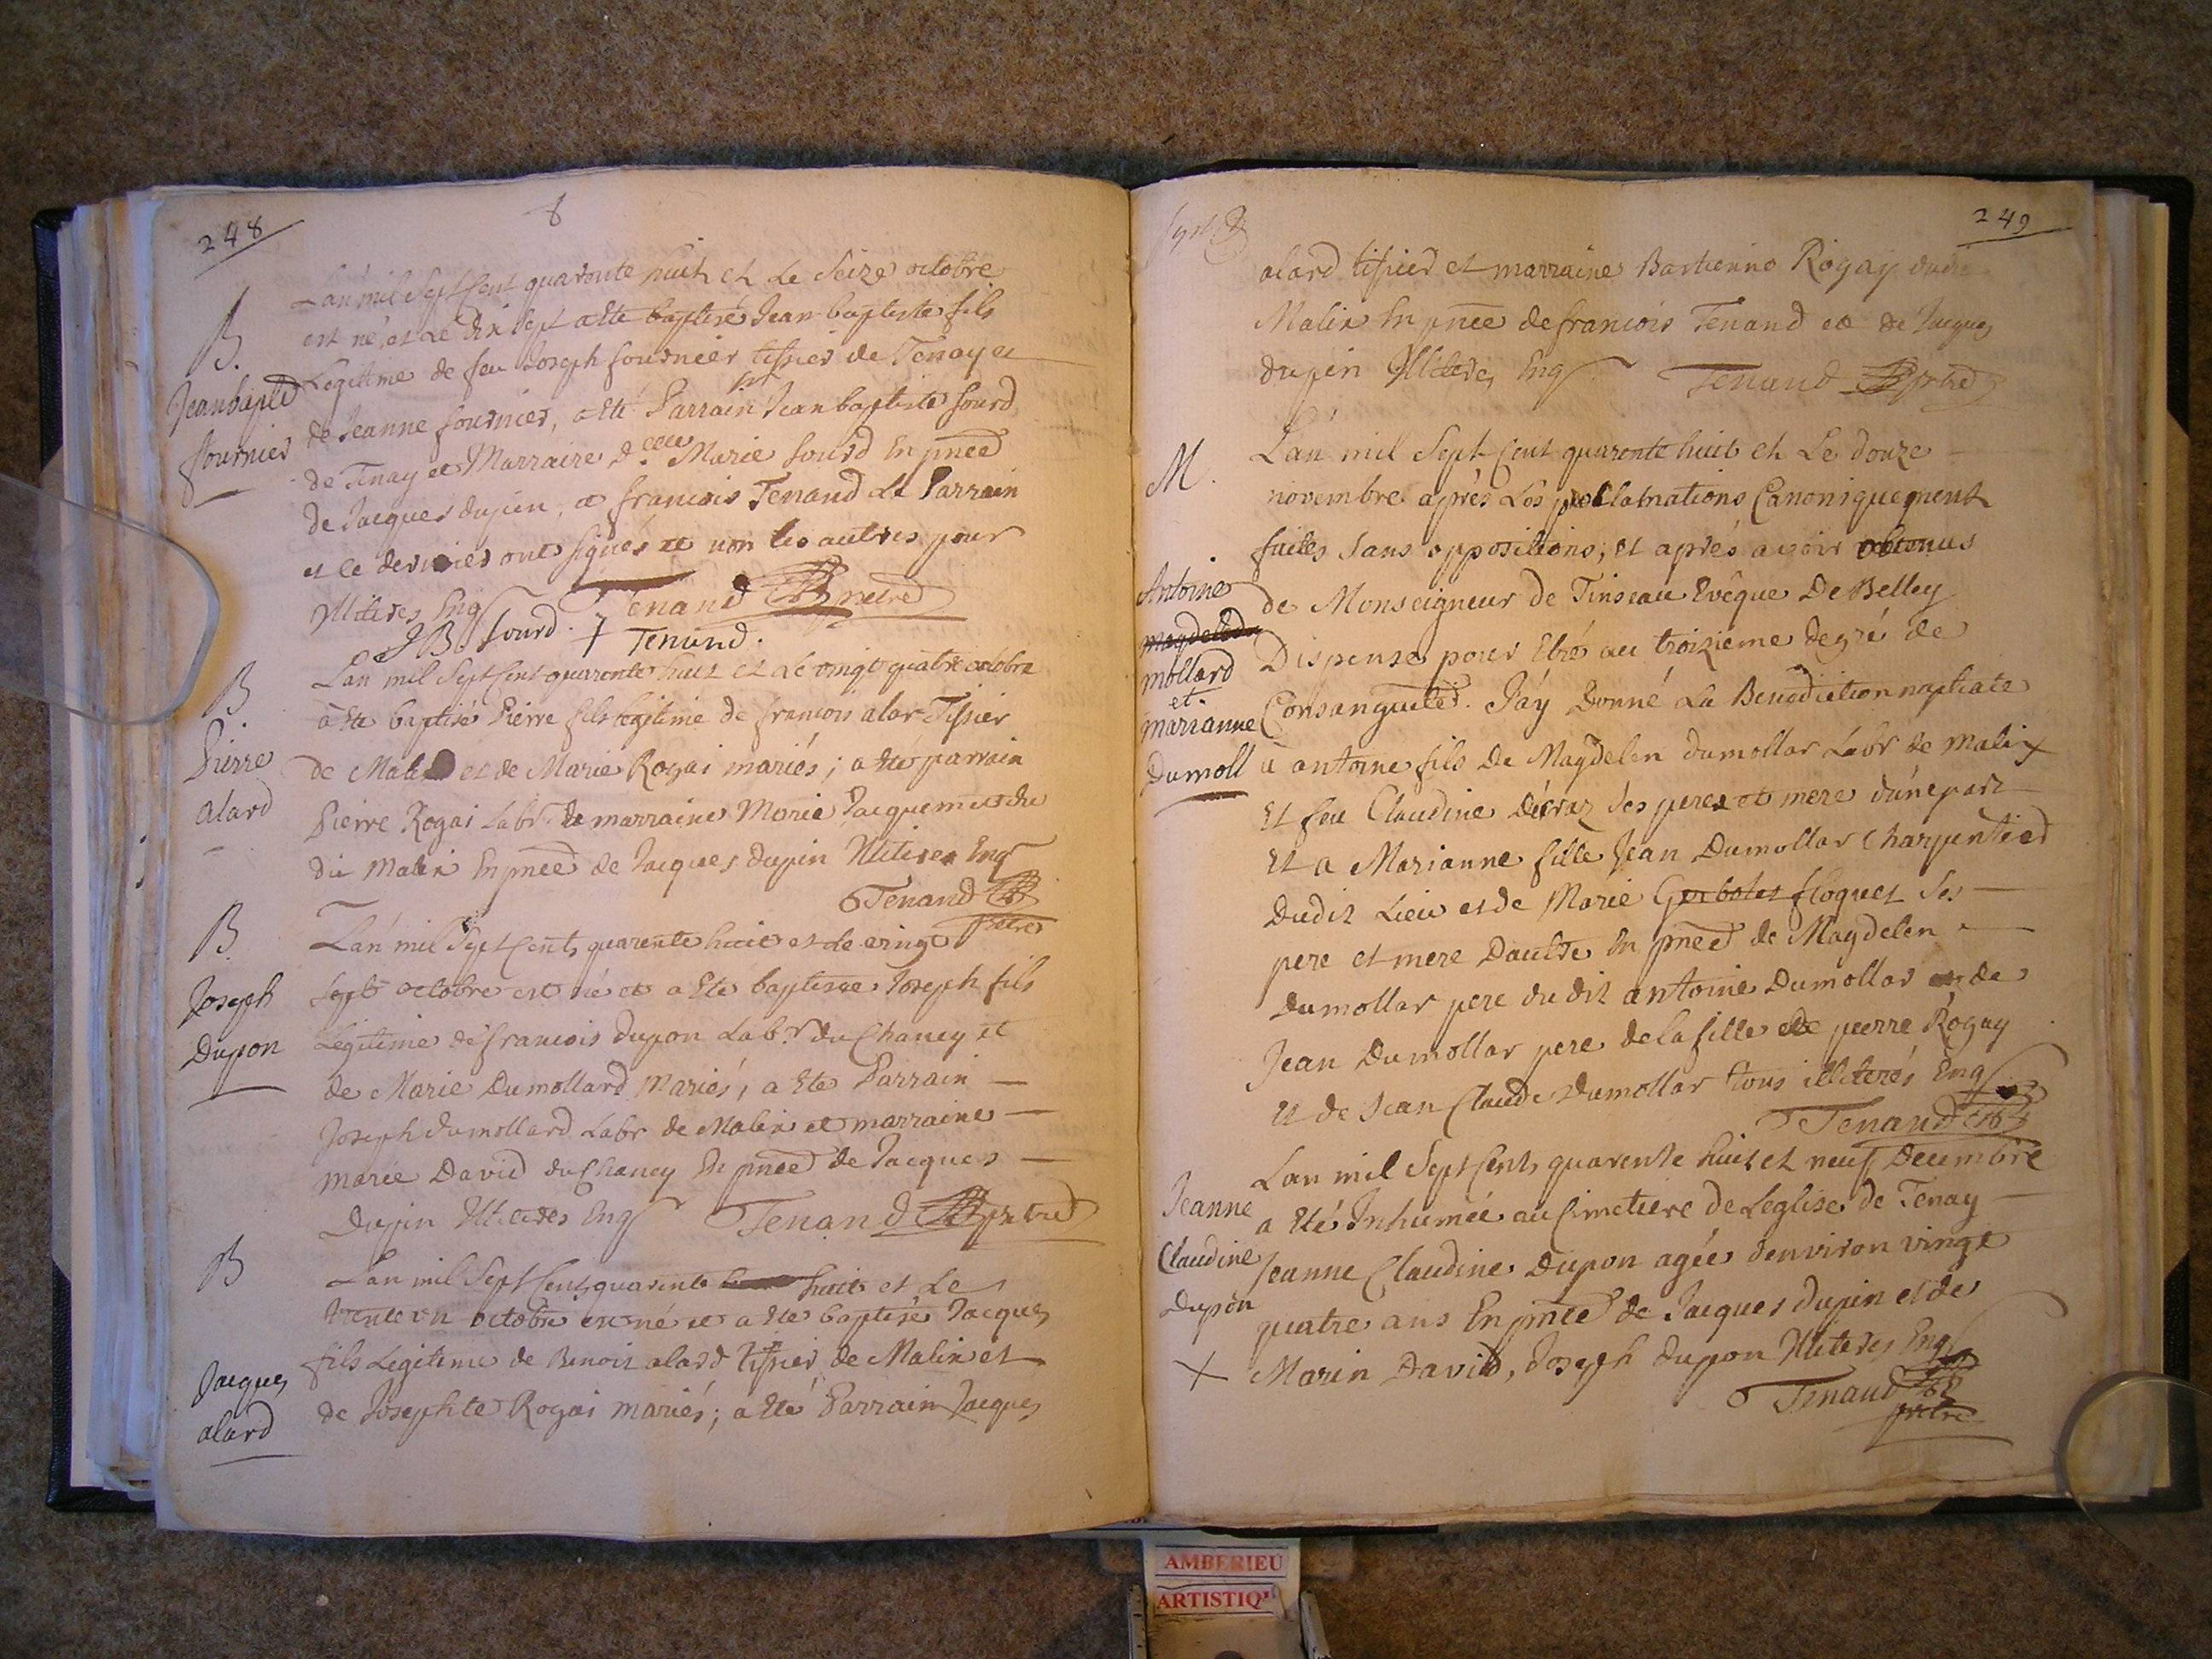 248
8
B.
Jean baptê
fournier
L'an mil sept cent quarente huit et Le Seize octobre
est né, et Le dix sept a eté baptisé Jean baptiste fils
Legitime de feu Joseph fournier tissier de Tenay et
de Jeanne fournier, a eté Parrain Sr Jean baptiste sourd
de Tenay et Marraine delle Marie sourd En pnce
de Jacques dupin, et francois Tenand Le Parrain
et Le dernier ont signés et non les autres pour
Illiteres Enqs Tenand prêtre
J B. sourd. † Tenand.
B
Pierre
alard
L'an mil sept cent quarente huit et Le vingt quatre octobre
a eté baptisé Pierre fils legitime de francois alar Tissier
de Malix et de Marie Rogai mariés; a eté parrain
Pierre Rogai Labr. et marraine Marie Jacquemet du
du Malix En pnce de Jacques dupin Illiteres Enqs
Tenand
prêtre
B
Joseph
Dupon
L'an mil sept cents quarente huit et Le vingt
sept octobre est né et a eté baptisé Joseph fils
Legitime de francois dupon Labr. du Chaney et
de Marie Dumollard mariés, a eté Parrain
Joseph dumollard Labr de Malix et marraine
marie David du Chaney En pnce de Jacques
Dupin Illiteres Enqs Tenand prêtre
B
Jacques
alard
L'an mil sept cents quarente huit et Le
trente un octobre est né et a eté baptisé Jacques
fils Legitime de Benoit alard tissier de Malix et
de Josephte Rogai mariés; a eté Parrain Jacques
249
alard tissier et marraine Bastienne Rogay dudit
Malix En pnce de francois Tenand et de Jacques
dupin Illiteres Enqs Tenand prêtre
M.
Antoine
mollard
et.
marianne
Dumoll
L'an mil sept cent quarente huit et Le douze
novembre après Les proclamations Canoniquement
faites sans oppositions, et après avoir obtenus
de Monseigneur de Tinseau Evêque De Belley
Dispense pour Etre au troizieme degré de
Consanguité. J'ay Donné La Benediction nuptiale
a antoine fils de Magdelen dumollar Labr de malix
et feu Claudine Décraz ses pere et mere d'une part
et a Marianne fille Jean Dumollar Charpentier
Dudit Lieu et de Marie Gerbolet floquet Ses
pere et mere D'aultre En pnce de Magdelen
dumollar pere du dit antoine Dumollar et de
Jean Dumollar pere de la fille et de pierre Rogay
et de Jean Claude Dumollar tous illiterés Enqs
Tenand
Jeanne
Claudine
Dupon
X
L'an mil sept cents quarente huit et neuf Decembre
a eté Inhumée au Cimetiere de L'eglise de Tenay
Jeanne Claudine Dupon agée d'environ vingt
quatre ans En pnce de Jacques dupin et de
Marin David, Joseph dupon Illiteres Enqs
Tenand
prêtre
AMBERIEU
ARTISTIQ